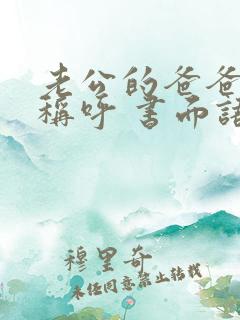 老公的爸爸
稱呼 書而語
穆里奇
未经同意禁止转载